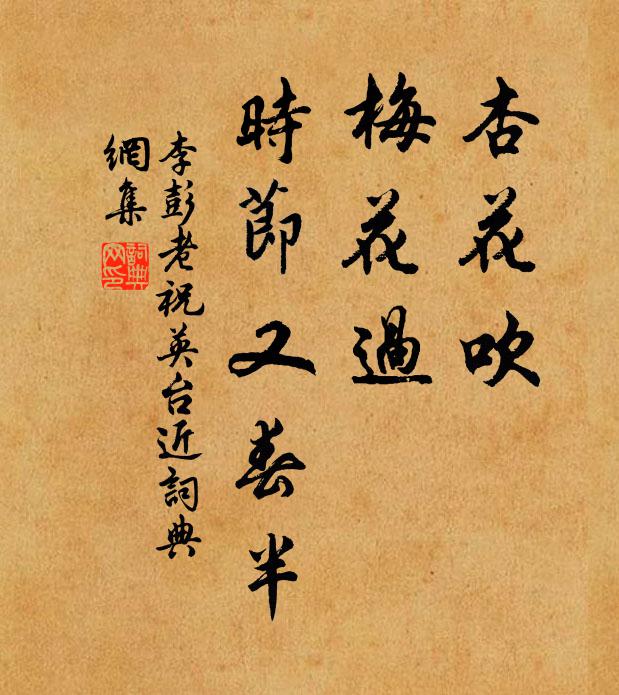 杏花吹
梅花過
時節又春半
李彭老祝英台近詞典
網集
詞典
网印